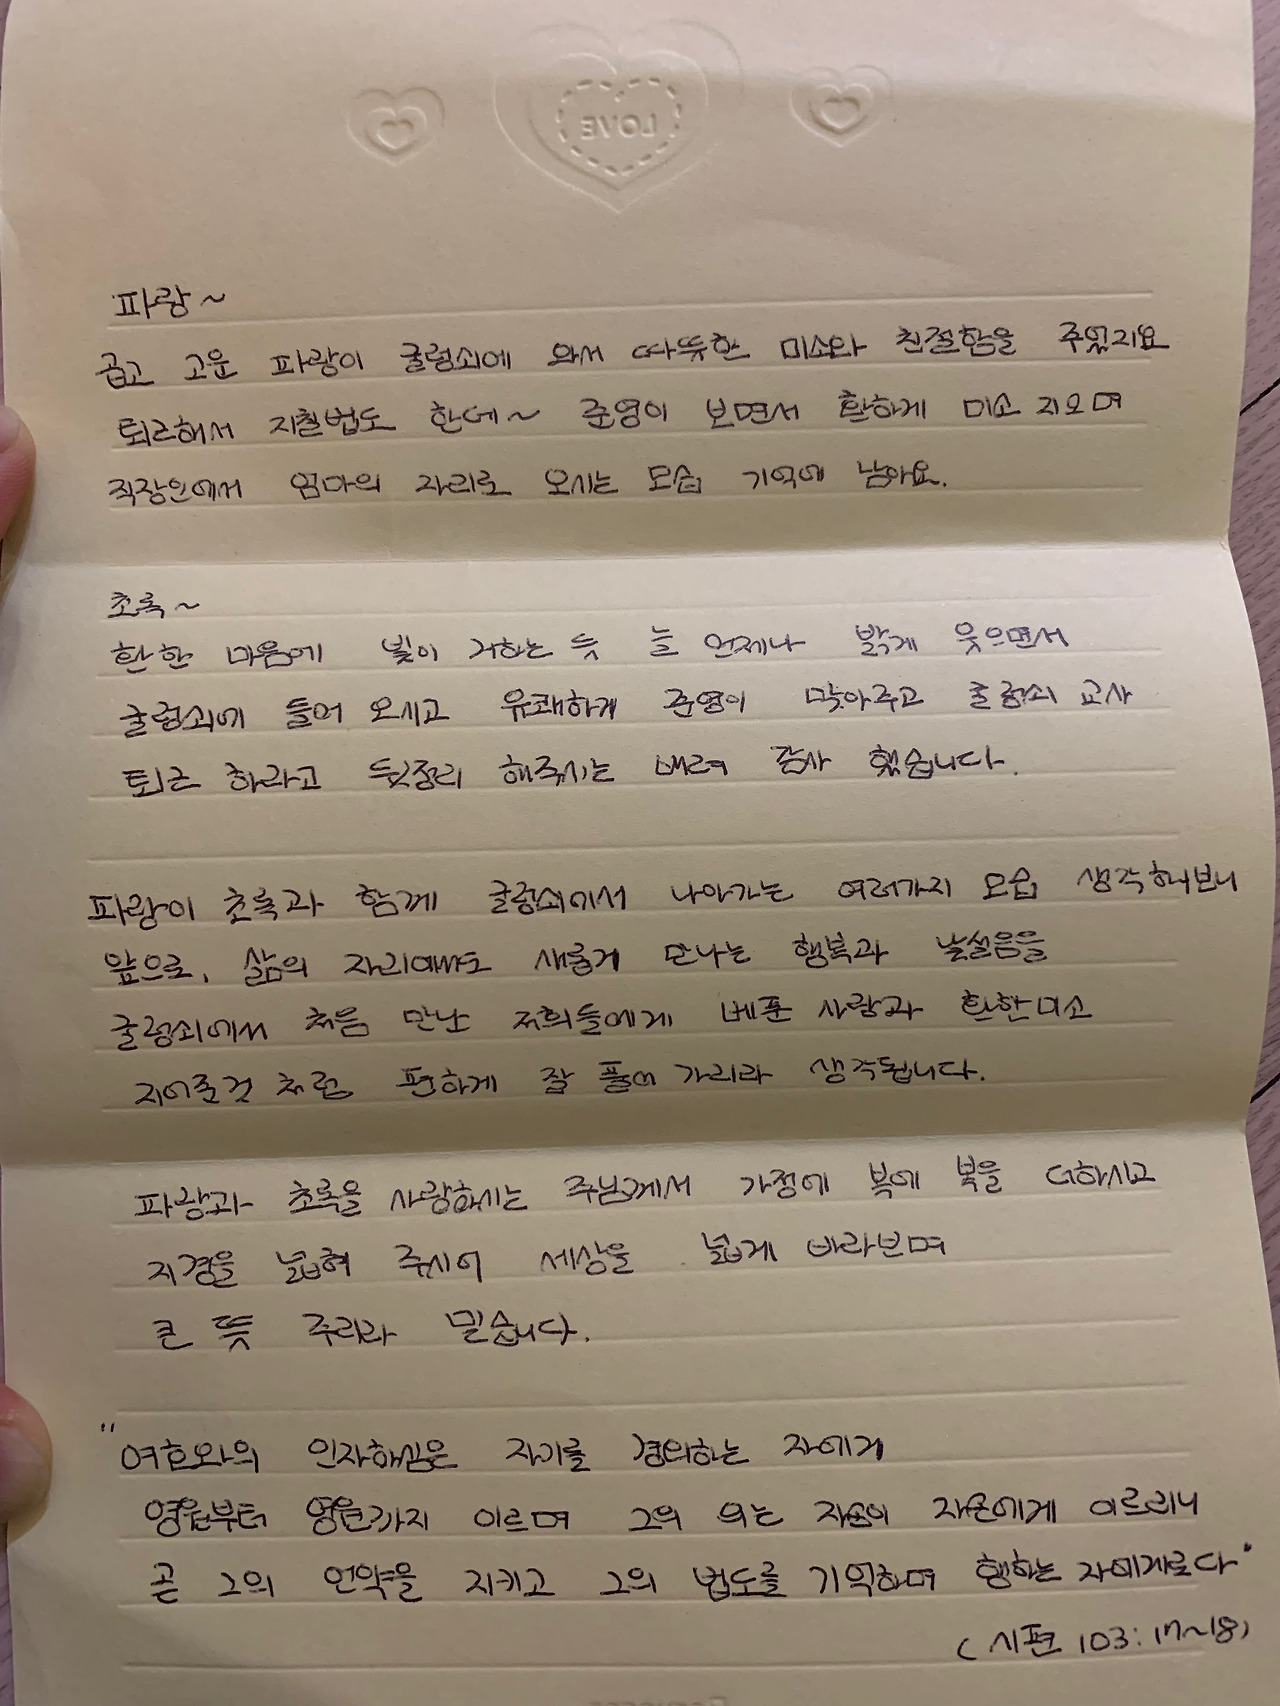 LOVE
파랑~
곱고 고운 파랑이 굴렁쇠에 와서 따뜻한 미소와 친절함을 주었지요
퇴근해서 지칠법도 한데~ 준영이 보면서 환하게 미소 지으며
직장인에서 엄마의 자리로 오시는 모습 기억에 남아요.
초록~
환한 마음에 빛이 거하는 듯 늘 언제나 밝게 웃으면서
굴렁쇠에 들어 오시고 유쾌하게 준영이 맞아주고 굴렁쇠 교사
퇴근 하라고 뒷정리 해주시는 배려 감사 했습니다.
파랑이 초록과 함께 굴렁쇠에서 나아가는 여러가지 모습 생각해보니
앞으로, 삶의 자리에서도 새롭게 만나는 행복과 낯설음을
굴렁쇠에서 처음 만난 저희들에게 베푼 사랑과 환한미소
지어준것 처럼 편하게 잘 풀어 가리라 생각됩니다.
파랑과 초록을 사랑하시는 주님께서 가정에 복에 복을 더하시고
지경을 넓혀 주시어 세상을 넓게 바라보며
큰 뜻 주리라 믿습니다.
"여호와의 인자하심은 자기를 경외하는 자에게
영원부터 영원까지 이르며 그의 의는 자손의 자손에게 이르리니
곧 그의 언약을 지키고 그의 법도를 기억하며 행하는 자에게로다"
(시편 103:17~18)